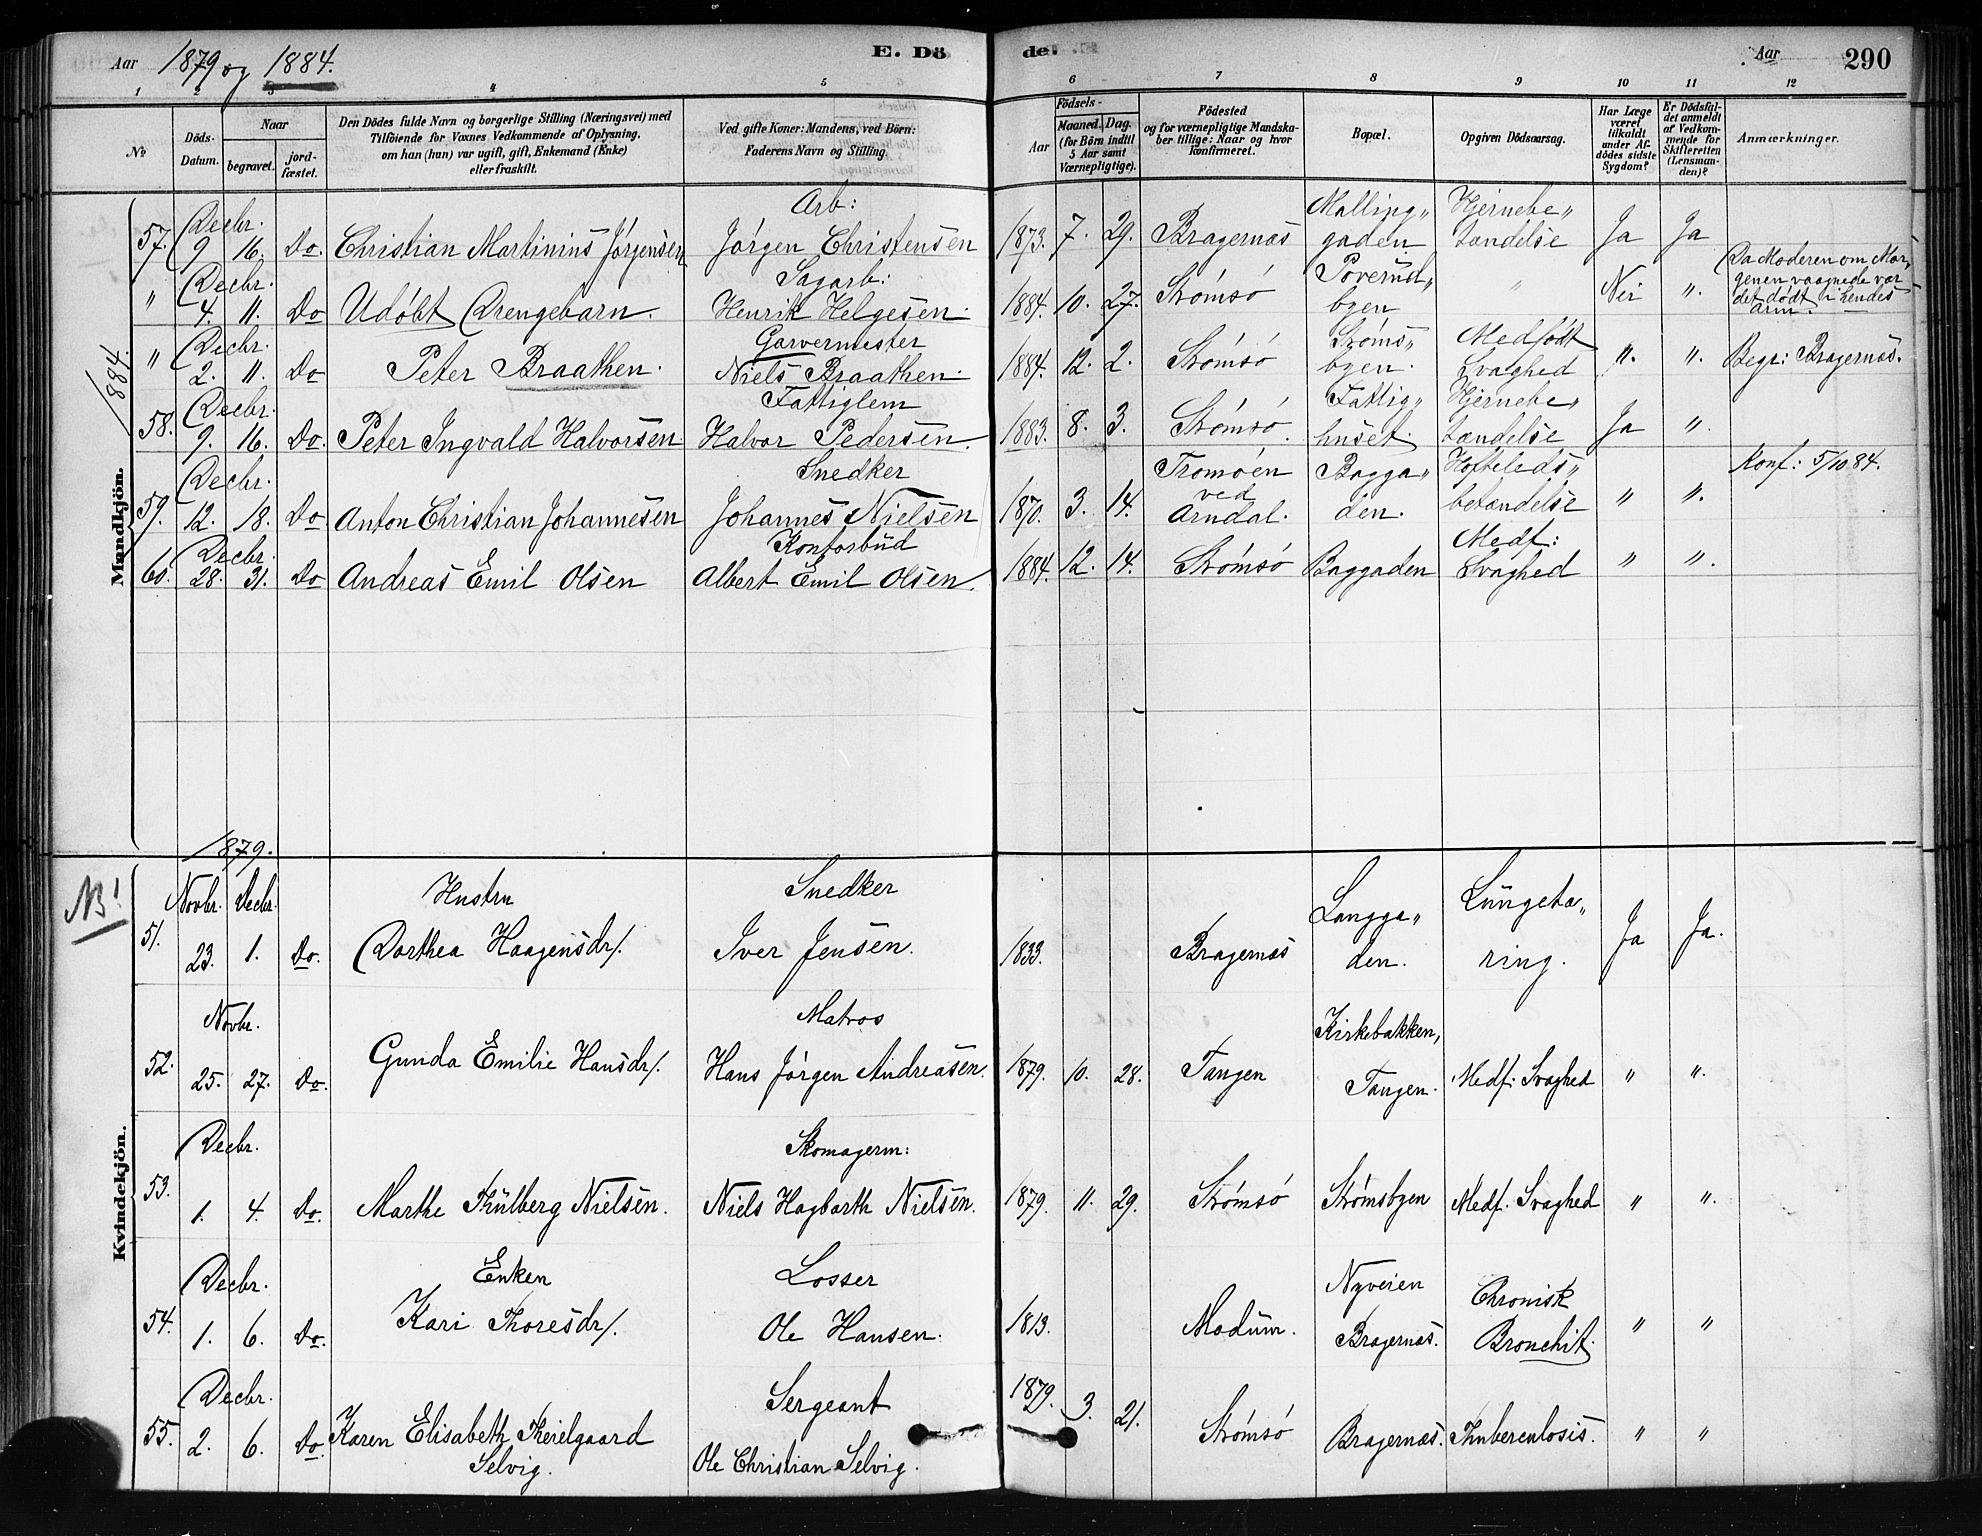 Aar 1879 og 1884. E. Döde. Aar 290
1 2 3 4 5 6 7 8 9 10 11 12
No
Döds-Datum.
Naar
begravet.
jordfæstet.
Den Dödes fulde Navn og borgerlige Stilling (Næringsvei) med
Tilföiende for Voxnes Vedkommende af Oplysning,
om han (hun) var ugift, gift, Enkemand (Enke)
eller fraskilt.
Ved gifte Koner: Mandens, ved Börn:
Faderens Navn og Stilling.
Födsels-
Aar
Maaned. Dag.
(for Börn indtil
5 Aar samt
Værnepligtige).
Födested
og for værnepligtige Mandska-
ber tillige: Naar og hvor
konfirmeret.
Bopæl.
Opgiven Dödsaarsag.
Har Læge
været
tilkaldt
under Af-
dödes sidste
Sygdom?
Er Dödsfal-
det anmeldt
af Vedkom-
mende for
Skifteretten
(Lensman-
den)?
Anmærkninger.
Mandkjön.
1884.
Decbr. Arb: Malling„ Hjernebe„
57. 9 16. Do. Christian Martinius Jørgensen Jørgen Christensen 1873. 7. 29. Bragernæs gaden tændelse Ja Ja
Decbr. Sagarb: Poverud„ Da Moderen om Mor„
" 4. 11. Do Udøbt Drengebarn. Henrik Helgesen. 1884. 10. 27. Strømsø byen " Nei ". genen vaagnede var
det dødt i hendes
arm.
Decbr. Garvermester Strøms„ Medfødt
" 2. 11. Do Peter Braathen. Niels Braathen. 1884. 12. 2. Strømsø byen. Svaghed ". ". Begr: Bragernæs.
Decbr. Fattiglem Fattig„ Hjernebe„
58. 9. 16. Do. Peter Ingvald Halvorsen Halvor Pedersen. 1883. 8. 3. Strømsø. huset. tændelse Ja ".
Decbr. Snedker Tromøen Bagga„ Hofteleds„ Konf: 5/10 84.
59. 12. 18. Do Anton Christian Johannesen Johannes Nielsen 1870. 3. 14. ved Arndal. den. betændelse " ".
Decbr. Kontorbud Medf:
60. 28. 31. Do Andreas Emil Olsen Albert Emil Olsen. 1884. 12. 14. Strømsø Baggaden Svaghed " ".
1879.
NB!
Kvindekjön.
Novbr. Decbr. Hustru Snedker Langga„ Lungetæ„
51. 23. 1. Do. Dorthea Haagensdr/. Iver Jensen. 1833. Bragernæs den. ring. Ja Ja.
Novbr. Matros Kirkebakken,
52. 25. 27. Do. Gunda Emilie Hansdr/. Hans Jørgen Andreasen. 1879. 10. 28. Tangen Tangen. Medf: Svaghed " ".
Decbr. Skomagerm:
53. 1. 4. Do. Marthe Thulberg Nielsen. Niels Hagbarth Nielsen. 1879. 11. 29. Strømsø Strømsbyen Medf. Svaghed " ".
Decbr. Enken Losser Nyveien Chronisk
54. 1. 6. Do. Kari Thoresdr/. Ole Hansen. 1813. Modum. Bragernæs. Bronchit. " "
Decbr. Sergeant
55. 2. 6. Do. Karen Elisabeth Selvig. Ole Christian Selvig. 1879. 3. 21. Strømsø Bragernæs. Thuberculosis. " "